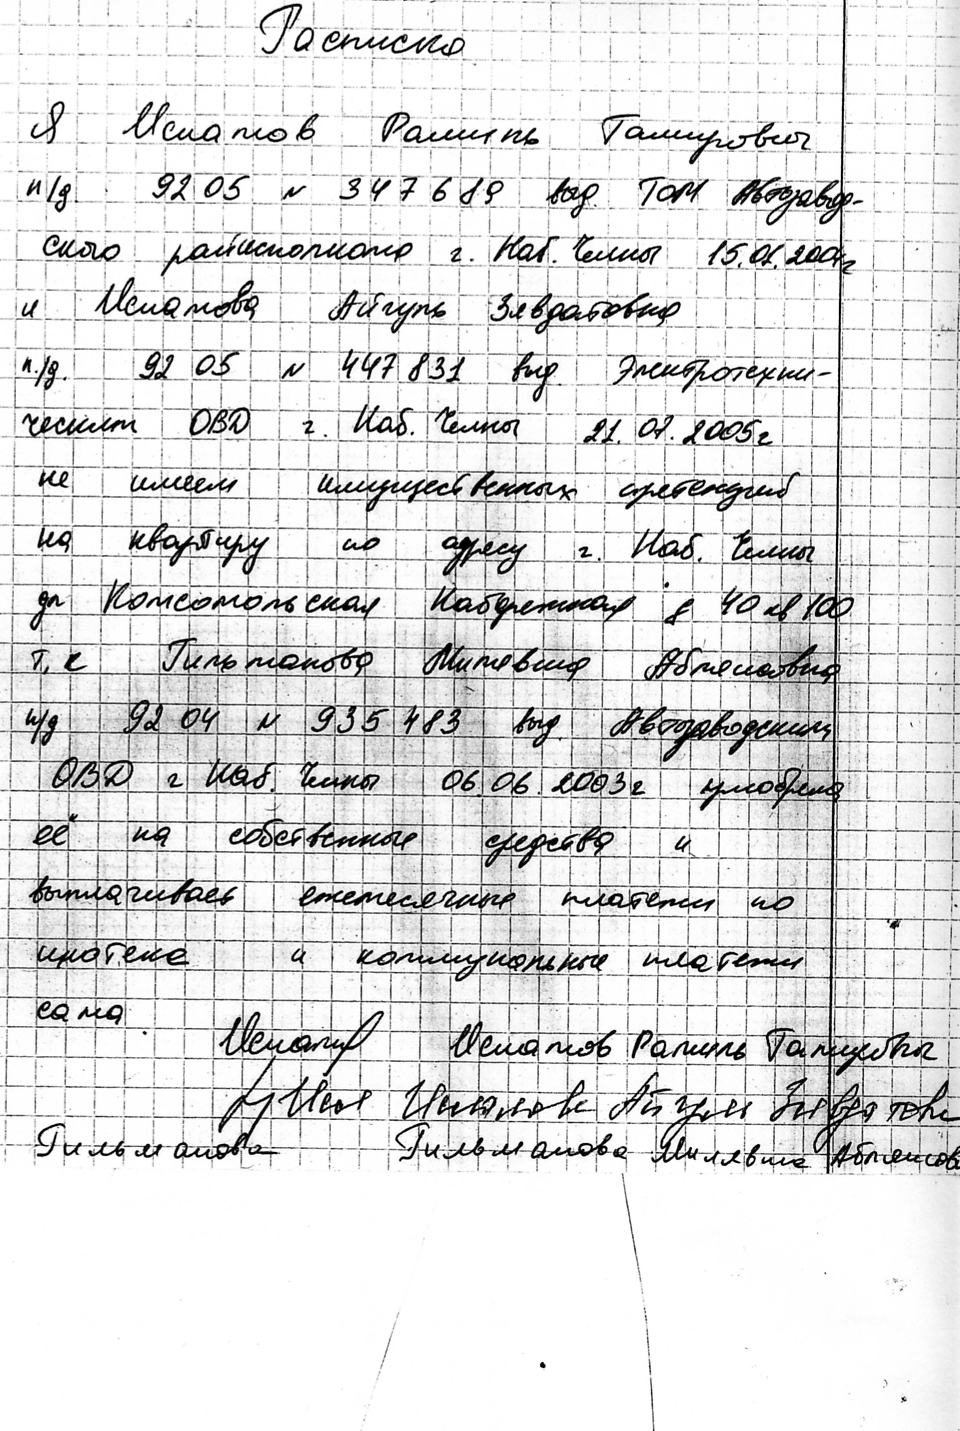 Расписка
Я Исламов Рамиль Тамирович
п/д. 92 05 N 347689 выд ТОМ Автозавод-
ского райисполкома г. Наб. Челны
и Исламова Айгуль Зявдатовна
п./д. 92 05 N 447831 выд. Электротехни-
ческим ОВД г. Наб. Челны 21.07.2005г
не имеем имущественных претензий
на квартиру по адресу г. Наб. Челны
Комсомольская Набережная д 40 кв 100
т, к Гильманова Милявша
п/д 92 04 N 935483 выд. Автозаводским
ОВД г Наб. Челны 06.06.2003г приобрела
её на собственные средства и
выплачивает ежемесячные платежи по
ипотеке и коммунальные платежи
сама
Исламов Исламов Рамиль Тамирович
Исламова Айгуль Зявдатовн
Гильманова Гильманова Милявша